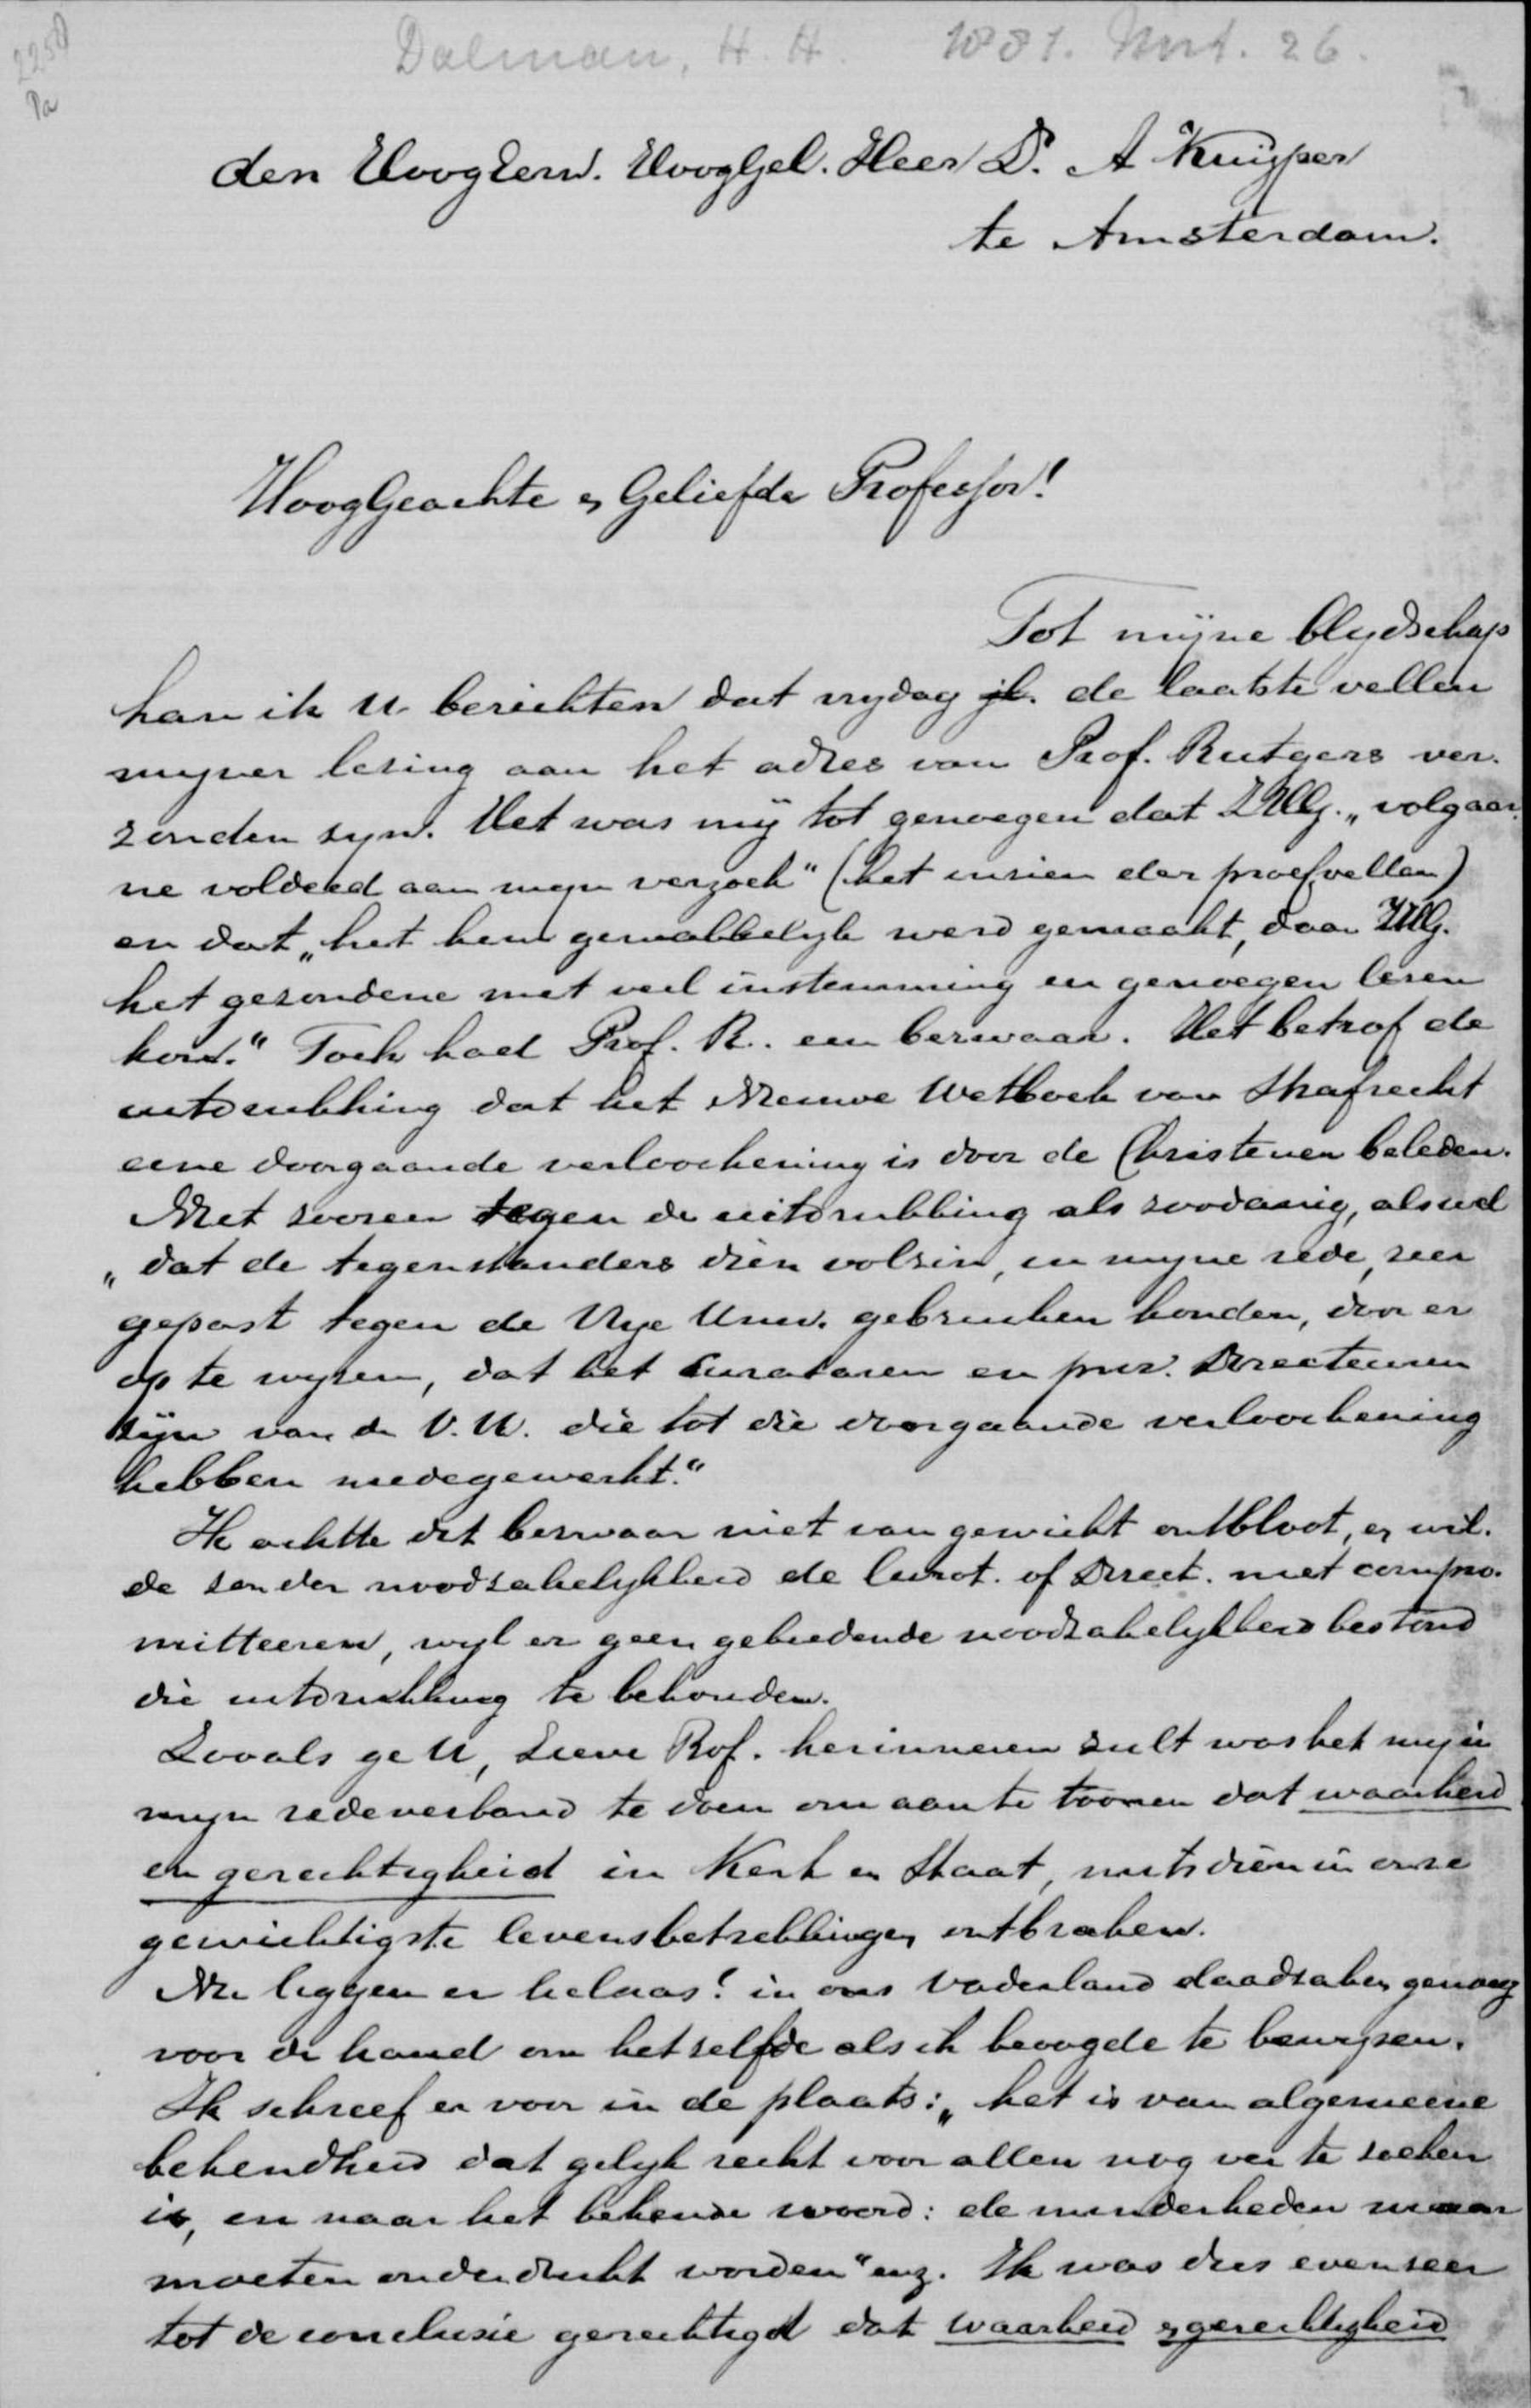 2250
Pa
Dalman, H. H. 1881. Mrt. 26.
den HoogEerw. HoogGel. Heer Dr. A Kuijper
te Amsterdam.
HoogGeachte en Geliefde Professor!
Tot mijne blydschap
kan ik U berichten dat vrydag jl. de laatste vellen
myner lezing aan het adres van Prof. Rutgers ver-
zonden zyn. Het was mij tot genoegen dat ZHG. „volgaar-
ne voldeed aan myn verzoek" (het inzien der proefvellen)
en dat „het hem gemakkelyk werd gemaakt, daar ZHG.
het gezondene met veel instemming en genoegen lezen
kon." Toch had Prof. R. een bezwaar. Het betrof de
uitdrukking dat het Nieuwe Wetboek van Strafrecht
eene doorgaande verloochening is door de Christenen beleden.
Niet zoozeer tegen de uitdrukking als zoodanig, als wel
„dat de tegenstanders dien volzin, in myne rede, zeer
gepast tegen de Vrye Univ. gebruiken konden, door er
op te wyzen, dat het Curatoren en Directeuren
zijn van de V.U. die tot die doorgaande verloochening
hebben medegewerkt."
Ik achtte dit bezwaar niet van gewicht ontbloot, en wil-
de zonder noodzakelykheid de Curat. of Direct. niet compro-
mitteeren, wyl er geen gebiedende noodzakelykheid bestond
die uitdrukking te behouden.
Zooals ge U, Lieve Prof. herinneren zult was het my in
myn redeverband te doen om aan te toonen dat waarheid
en gerechtigheid in Kerk en Staat, mitsdien in onze
gewichtigste levensbetrekkingen ontbraken.
Nu liggen er helaas! in ons Vaderland daadzaken genoeg
voor de hand om hetzelfde als ik beoogde te bewyzen.
Ik schreef er voor in de plaats: „het is van algemeene
bekendheid dat gelyk recht voor allen nog ver te zoeken
is, en naar het bekende woord: de minderheden maar
moeten onderdrukt worden" enz. Ik was dus evenzeer
tot de conclusie gerechtigd dat waarheid en gerechtigheid